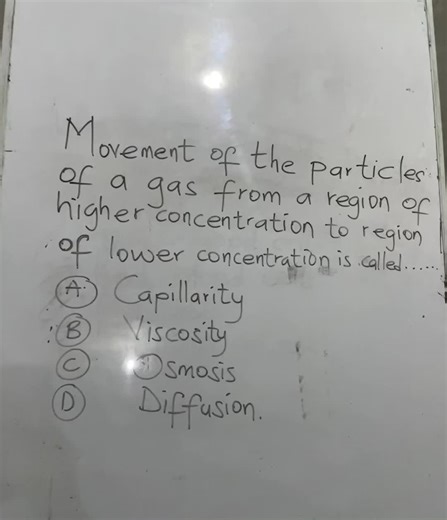 Movement of the particles
of a gas from a region of
higher concentration to region
of lower concentration is called.....
A. Capillarity
B Viscosity
C Osmosis
D Diffusion.